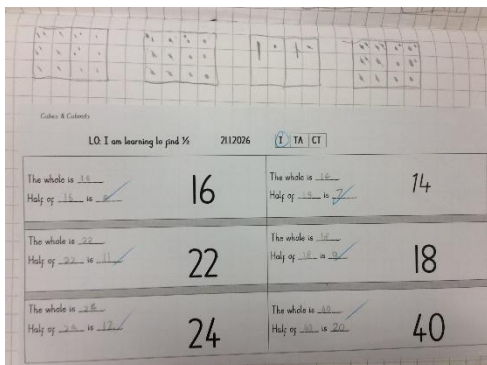 Cubes & Cuboids
LO: I am learning to find ½ 2112026 I TA CT
The whole is
Half of is
16
The whole is
Half of is 7
14
The whole is 22
Half of 22 is 11
22
The whole is 18
Half of 18 is 9
18
The whole is 24
Half of 24 is 12
24
The whole is 40
Half of 40 is 20
40